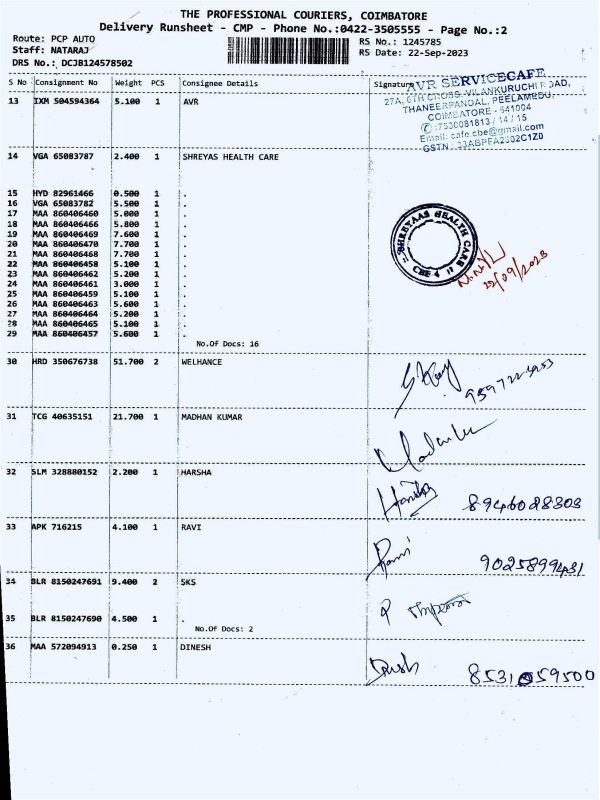 THE PROFESSIONAL COURIERS, COIMBATORE
Delivery Runsheet - CMP - Phone No.:0422-3505555 - Page No.:2
Route: PCP AUTO RS No.: 1245785
Staff: NATARAJ RS Date: 22-Sep-2023
DRS No.: DCJB124578502
S No Consignment No Weight PCS Consignee Details Signature
AVR SERVICECAFE
27A, 6TH CROSS, VILANKURUCHI ROAD,
THANEERPANDAL, PEELAMEDU,
COIMBATORE - 641004
✆:7530081813 / 14 / 15
Email: cafe.cbe@gmail.com
GSTN : 33ABPFA2302C1Z0
13 IXM 504594364 5.100 1 AVR
14 VGA 65083787 2.400 1 SHREYAS HEALTH CARE
15 HYD 82961466 0.500 1 .
16 VGA 65083782 5.500 1 .
17 MAA 860406460 5.000 1 .
18 MAA 860406466 5.800 1 .
19 MAA 860406469 7.600 1 .
20 MAA 860406470 7.700 1 .
21 MAA 860406468 7.700 1 .
22 MAA 860406458 5.100 1 .
23 MAA 860406462 5.200 1 .
24 MAA 860406461 3.000 1 .
25 MAA 860406459 5.100 1 .
26 MAA 860406463 5.600 1 .
27 MAA 860406464 5.200 1 .
28 MAA 860406465 5.100 1 .
29 MAA 860406457 5.600 1 .
No.Of Docs: 16
SHREYAAS HEALTH CARE
CBE 4
22/09/2023
30 HRD 350676738 51.700 2 WELHANCE
31 TCG 40635151 21.700 1 MADHAN KUMAR
32 SLM 328880152 2.200 1 HARSHA
Harsha 8946028303
33 APK 716215 4.100 1 RAVI
Ravi 9025899431
34 BLR 8150247691 9.400 2 SKS
35 BLR 8150247690 4.500 1 .
No.Of Docs: 2
36 MAA 572094913 0.250 1 DINESH
8531059500